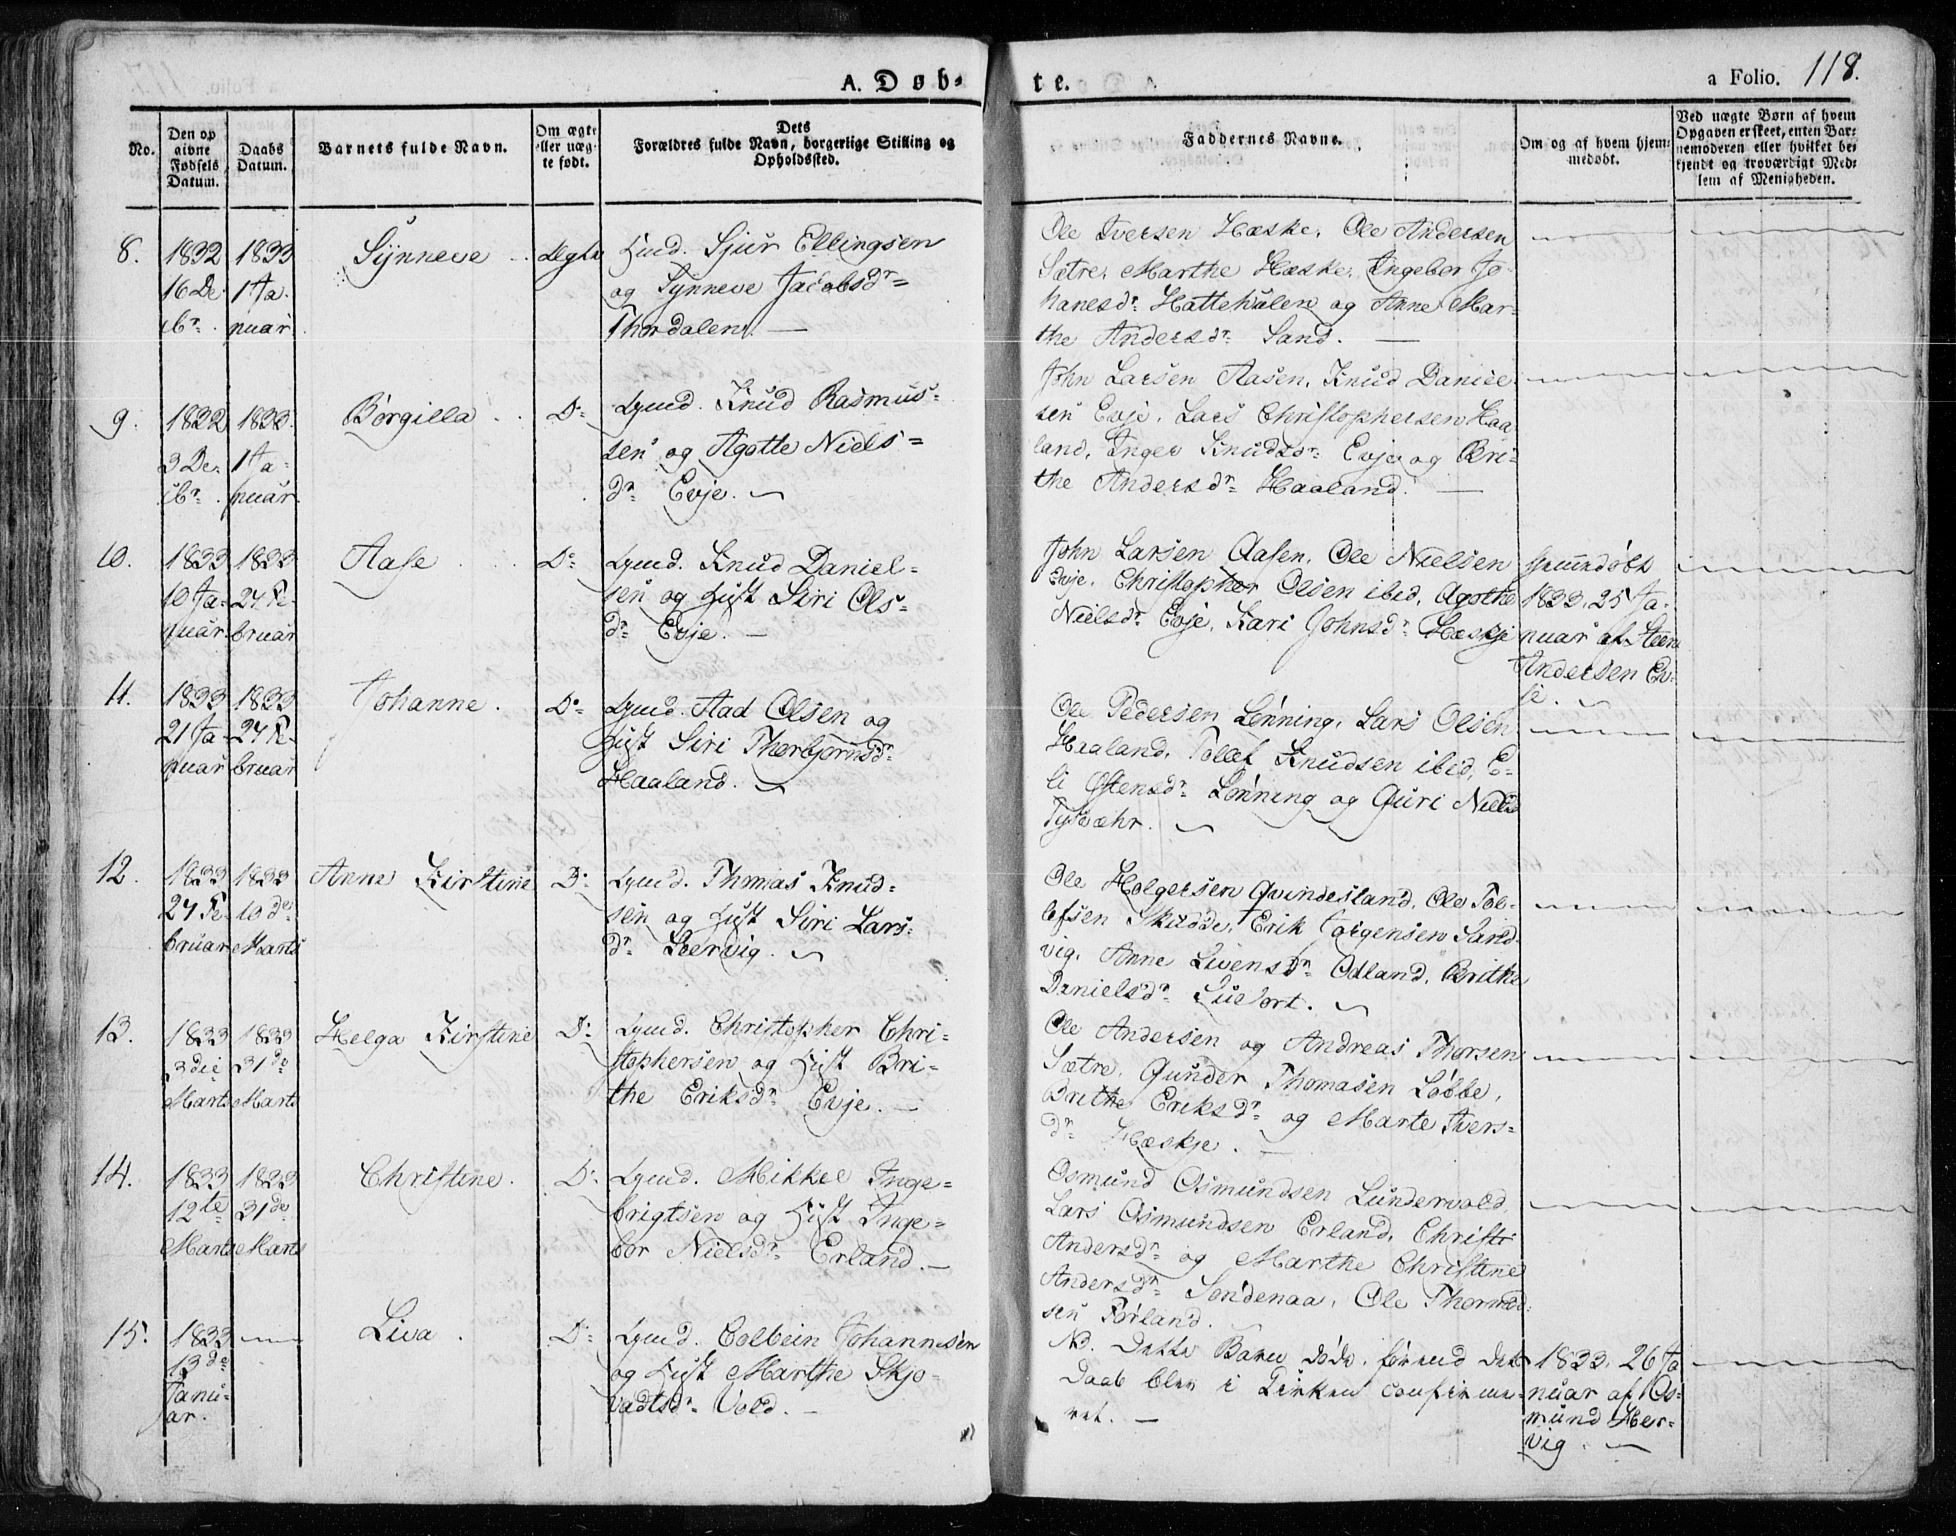 A. Døb-
te.
a Folio. 118.
No.
Den op
givne
Fødsels
Datum.
Daabs
Datum.
Barnets fulde Navn.
Om ægte
eller uæg-
te født.
Dets
Forældres fulde Navn, borgerlige Stilling og
Opholdssted.
Faddernes Navne.
Om og af hvem hjem-
medøbt.
Ved uægte Børn af hvem
Opgaven er skeet, enten Bar-
nemoderen eller hvilket be-
kjendt og troværdigt Med-
lem af Menigheden.
8.
1832
16 De-
cbr.
1833
1 Ja-
nuar
Synneve
Ægte
Sjur Ellingsen
og Synneve Jacobsdr=
Thordalen. —
Ole Iversen Hæske, Ole Andersen
Sætre, Marthe Hæske, Ingebor Jo-
hanesdr= Hattehålen og Anne Mar-
the Andersdr= Sand. —
9.
1832
3 De-
cbr.
1833.
1 Ja-
nuar.
Børgilla
Do
Lgmd. Knud Rasmus-
sen og Agothe Niels=
dr Evje.
John Larsen Aasen, Knud Daniel-
sen Evje, Lars Christophersen Haa-
land, Inger Knudsdr= Evje og Bri-
the Andersdr= Haaland. —
10.
1833
10 Ja-
nuar
1833
24 Fe-
bruar
Aase
Do
Lgmd. Knud Daniel-
sen og Hust Siri Ols-
dr= Evje. —
John Larsen Aasen, Ole Nielsen
Evje, Christopher Olsen ibid, Agothe
Nielsdr= Evje, Kari Johnsdr= Hæskje
hjemmdøbt
1833. 25 Ja-
nuar af Steen
Andersen Ev-
je.
11.
1833
21 Ja-
nuar
1833
24 Fe-
bruar
Johanne.
Do
Lgmd. Aad Olsen og
Hust Siri Thorbjørnsdr=
Haaland.
Ole Pedersen Lønning, Lars Olsen
Haaland, Tollef Knudsen ibid, E-
li Østensdr= Lønning og Guri Nielsd
Tysvæhr.
12.
1833
24 Fe-
bruar
1833
10 de
Marts
Anne Kirstine
Do
Lgmd. Thomas Knud-
sen og Hust Siri Lars-
dr= Leervig.
Ole Holgersen Qvindesland, Ole Tol-
lefsen Skudde, Erik Torgensen Sand-
vig, Anne Livensdr= Odland, Brithe
Danielsdr=
13.
1833
3die
Marts
1833
31de
Marts
Helga Kirstine
Do
Lgmd. Christopher Chri-
stophersen og Hust Bri-
the Eriksdr= Evje. —
Ole Andersen og Andreas Thorsen
Sætre, Gunder Thomasen Løbbe,
Brithe Eriksdr= og Marte Ivers-
dr= Hæskje.
14.
1833
12te
Marts
1833
31de
Marts
Christine.
Do
Lgmd. Mikkel Inge-
brigtsen og Hust Inge-
bor Nielsdr= Erland. —
Osmund Osmundsen Lundervold,
Lars Osmundsen Erland, Christi
Andersdr= og Marthe Christine
Andersdr= Søndenaa, Ole Thormod-
sen Førland.
15.
1833
13de
Janu-
ar.
Liva.
Do
Lgmd. Colbein Johannesen
og Hust Marthe Skjo-
vadtsdr= Vold. —
NB. Dette Barn døde, førend det
Daab blev i Kirken confirme-
ret. —
1833. 26 Ja-
nuar af Os-
mund Her-
vig. —